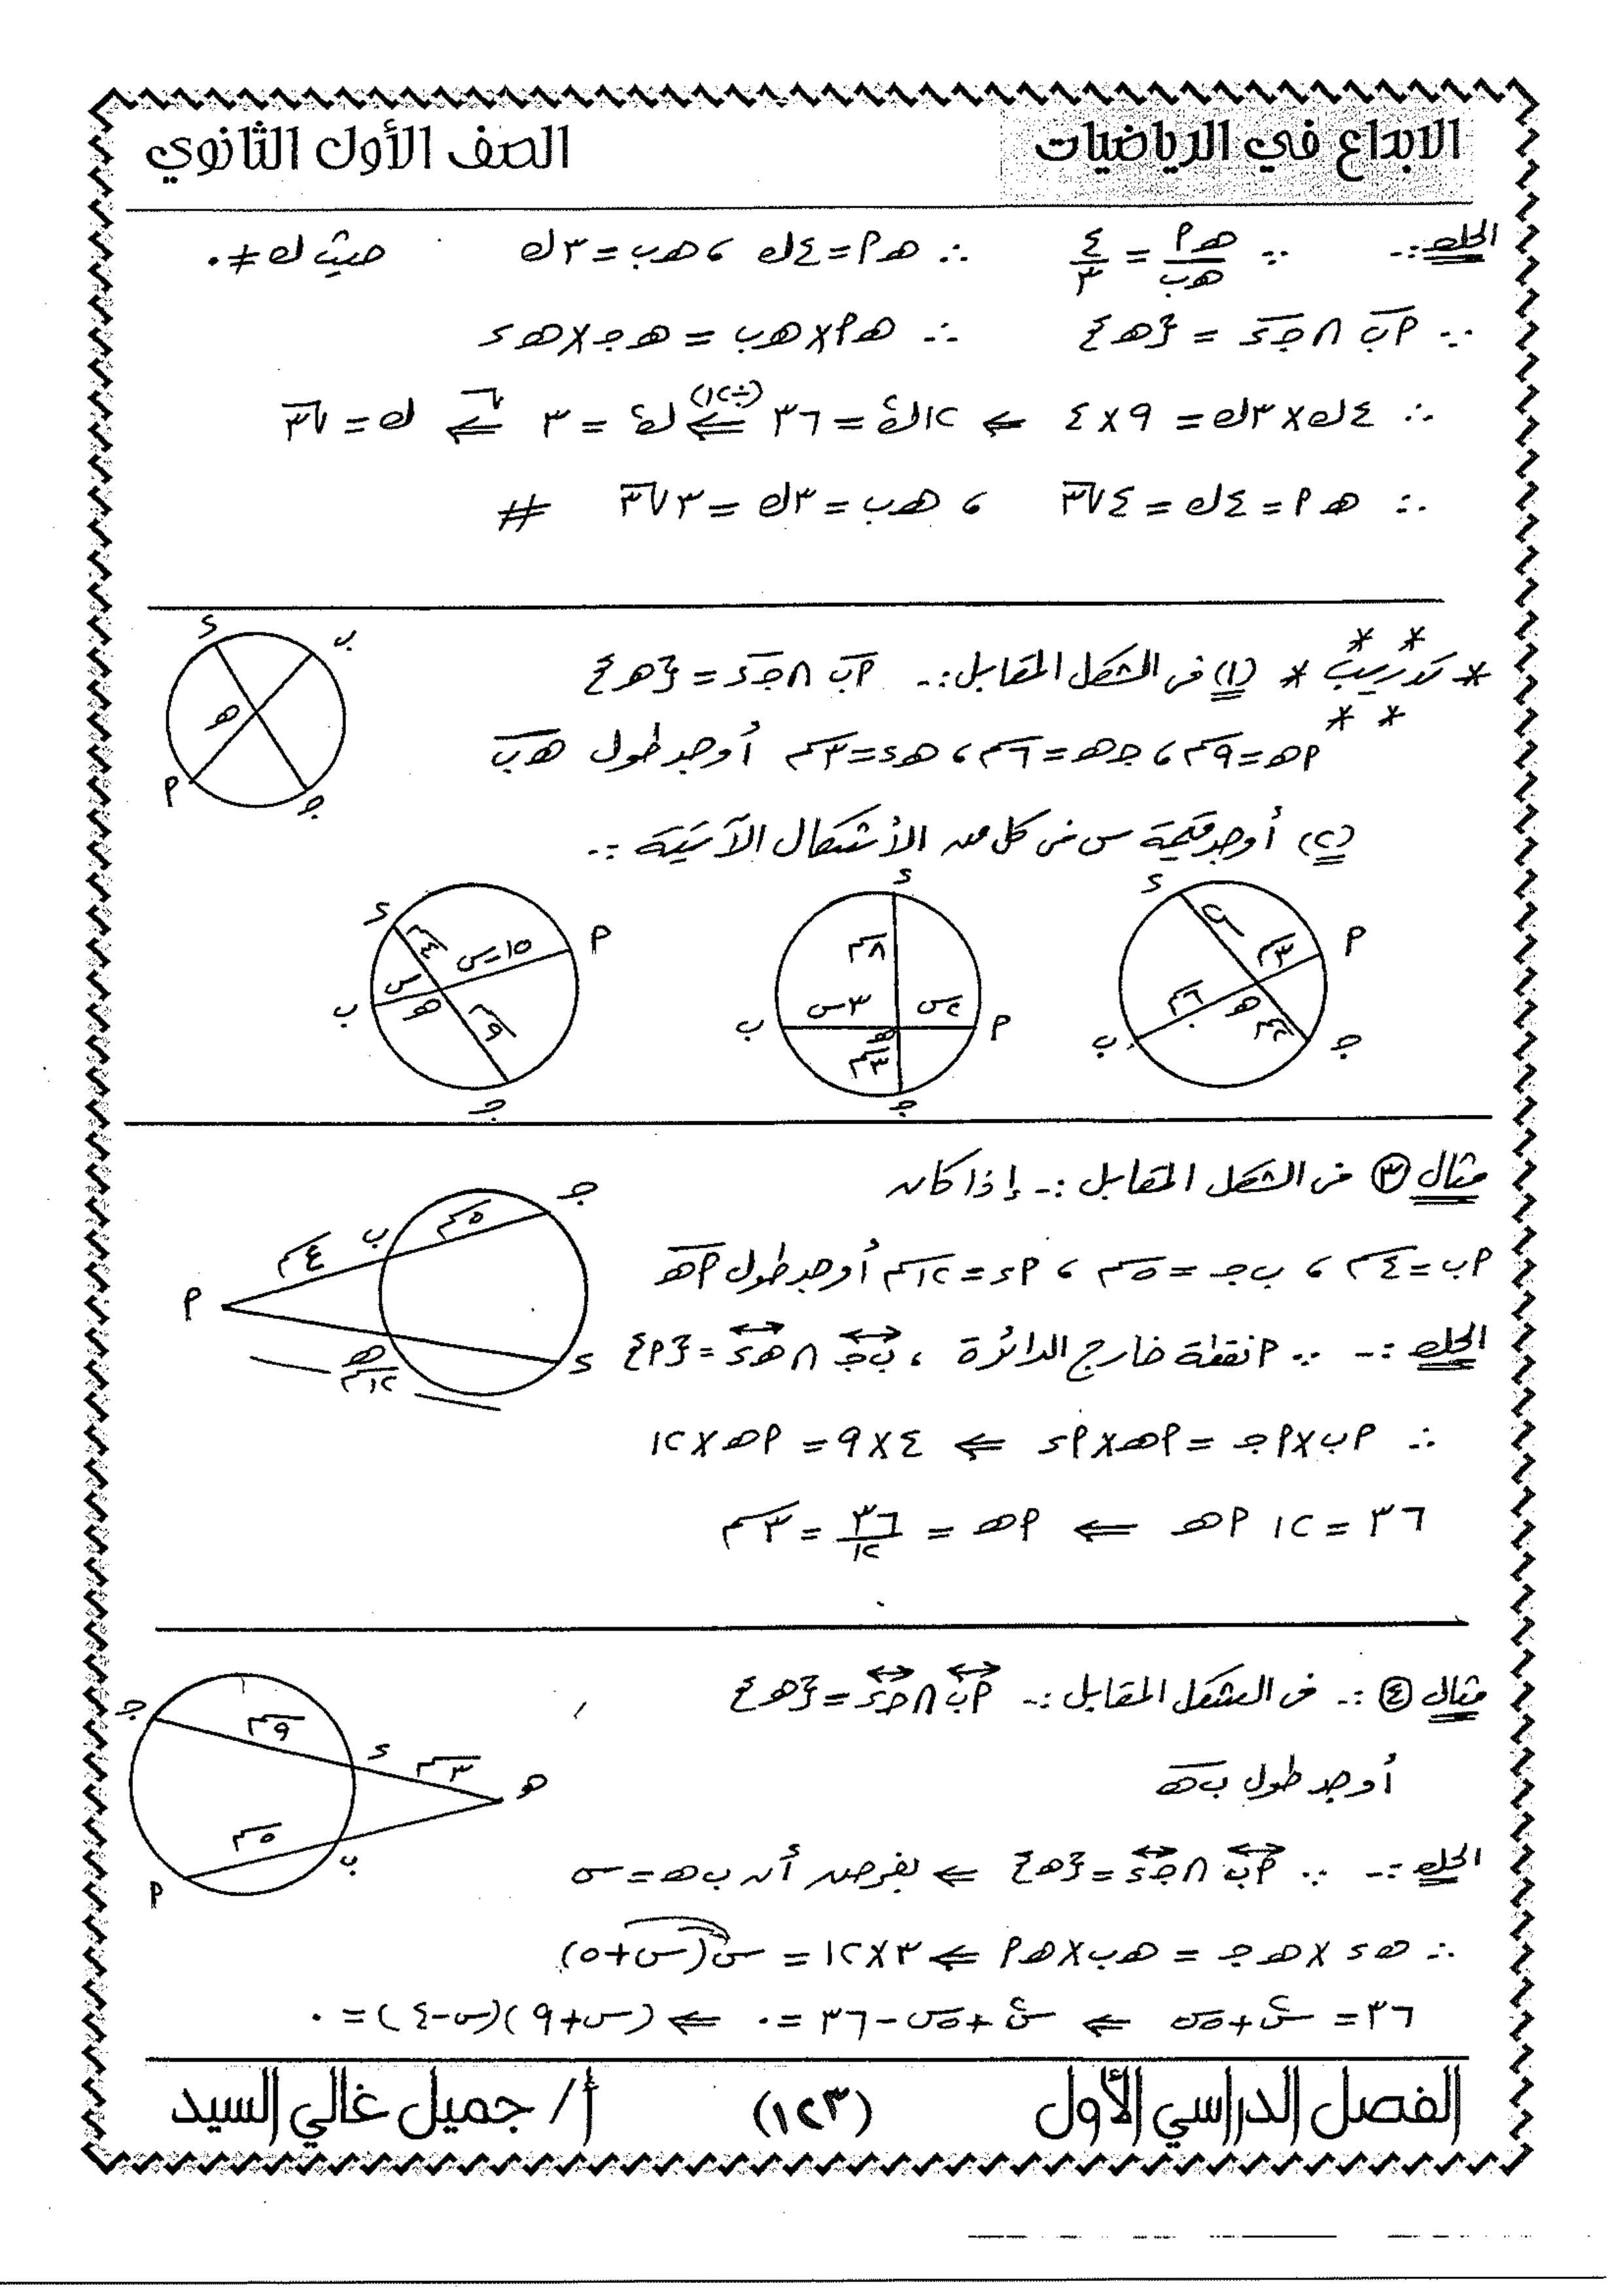 الابداع في الرياضيات
الصف الأول الثانوي
الحل :- ∵ هـ أ / هـ ب = ٤ / ٣ ∴ هـ أ = ٤ك ، هـ ب = ٣ك حيث ك ≠ ٠
∵ أب ∩ جـ د = {هـ} ∴ هـ أ × هـ ب = هـ جـ × هـ د
∴ ٤ك × ٣ك = ٩ × ٤ ⇐ ١٢ك² = ٣٦ ⇐ (÷١٢) ك² = ٣ ⇐ √ ك = √٣
∴ هـ أ = ٤ك = ٤√٣ ، هـ ب = ٣ك = ٣√٣ #
* تدريب * (١) في الشكل المقابل :- أب ∩ جـ د = {هـ}
أهـ = ٩سم ، جـ هـ = ٦سم ، هـ د = ٣سم أوجد طول هـ ب
د ب هـ أ جـ
(٢) أوجد قيمة س في كل من الأشكال الآتية :-
د أ ٣سم هـ ٦سم ب جـ
د ٨سم ٢س ٣س هـ ٣سم أ ب جـ
د ٤سم ١٥-س أ س هـ ٩سم ب جـ
مثال ٣ في الشكل المقابل :- إذا كان
أب = ٤سم ، ب جـ = ٥سم ، أد = ١٢سم أوجد طول أهـ
جـ ٥سم ب ٤سم أ د هـ ١٢سم
الحل :- ∵ أ نقطة خارج الدائرة ، ب جـ ∩ هـ د = {أ}
∴ أب × أجـ = أهـ × أد ⇐ ٤ × ٩ = أهـ × ١٢
٣٦ = ١٢ أهـ ⇐ أهـ = ٣٦ / ١٢ = ٣سم
مثال ٤ :- في الشكل المقابل :- أب ∩ جـ د = {هـ}
أوجد طول ب هـ
جـ ٩سم د ٣سم هـ ٥سم ب أ
الحل :- ∵ أب ∩ جـ د = {هـ} ⇐ بفرض أن ب هـ = س
∴ هـ د × هـ جـ = هـ ب × هـ أ ⇐ ٣ × ١٢ = س (س + ٥)
٣٦ = س² + ٥س ⇐ س² + ٥س - ٣٦ = ٠ ⇐ (س + ٩)(س - ٤) = ٠
الفصل الدراسي الأول
(١٢٣)
أ / جميل غالي السيد